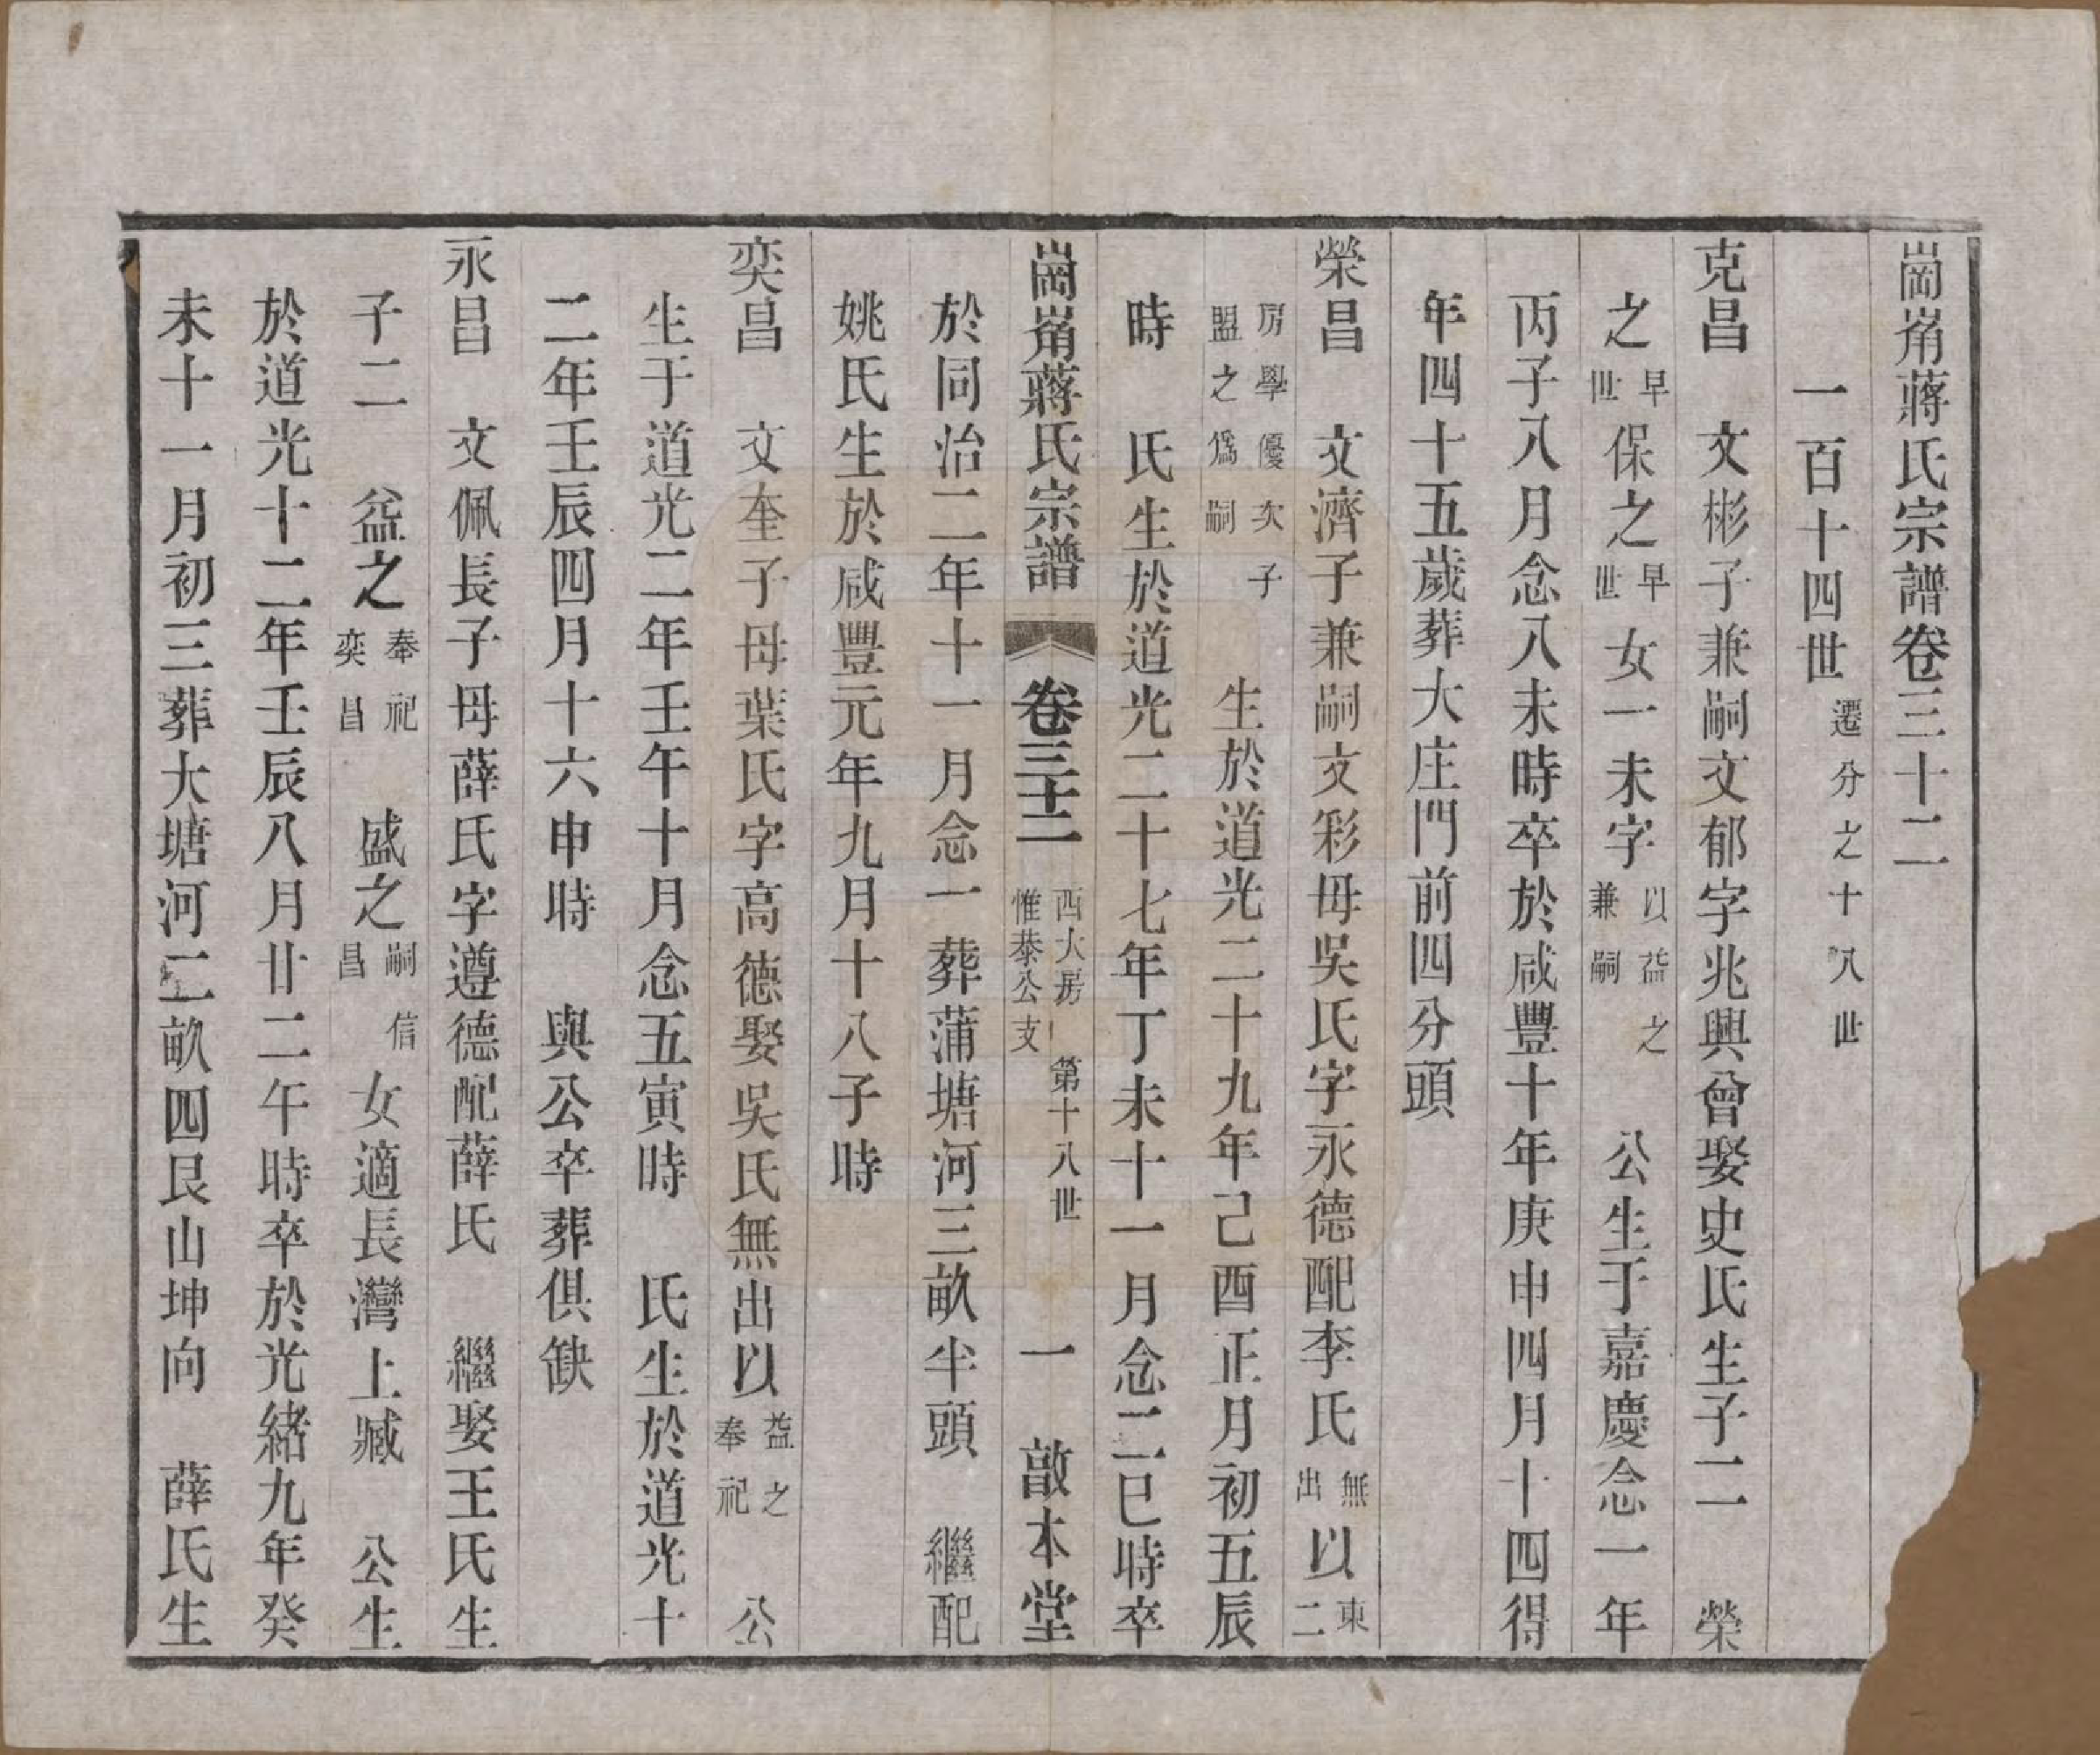 崗峟蔣氏宗譜卷三十二
一百十四世遷分之十八世
克昌 文彬子兼嗣文郁字兆興曾娶史氏生子二 榮
之早世保之早世 女一未字以益之兼嗣 公生于嘉慶念一年
丙子八月念八未時卒於咸豐十年庚申四月十四得
年四十五歲葬大庄門前四分頭
榮昌 文濟子兼嗣文彩母吳氏字永德配李氏無出以東二
房學優次子盟之爲嗣 生於道光二十九年己酉正月初五辰
時 氏生於道光二十七年丁未十一月念二巳時卒
崗峟蔣氏宗譜 卷三十二 西大房惟恭公支 第十八世 一 敿本堂
於同治二年十一月念一葬蒲塘河三畝半頭 繼配
姚氏生於咸豐元年九月十八子時
奕昌 文奎子母葉氏字高德娶吳氏無出以益之奉祀 公
生于道光二年壬午十月念五寅時 氏生於道光十
二年壬辰四月十六申時 與公卒葬俱缺
永昌 文佩長子母薛氏字遵德配薛氏 繼娶王氏生
子二 益之奉祀奕昌 盛之嗣信昌 女適長灣上臧 公生
於道光十二年壬辰八月廿二午時卒於光緒九年癸
未十一月初三葬大塘河二畝四艮山坤向 薛氏生